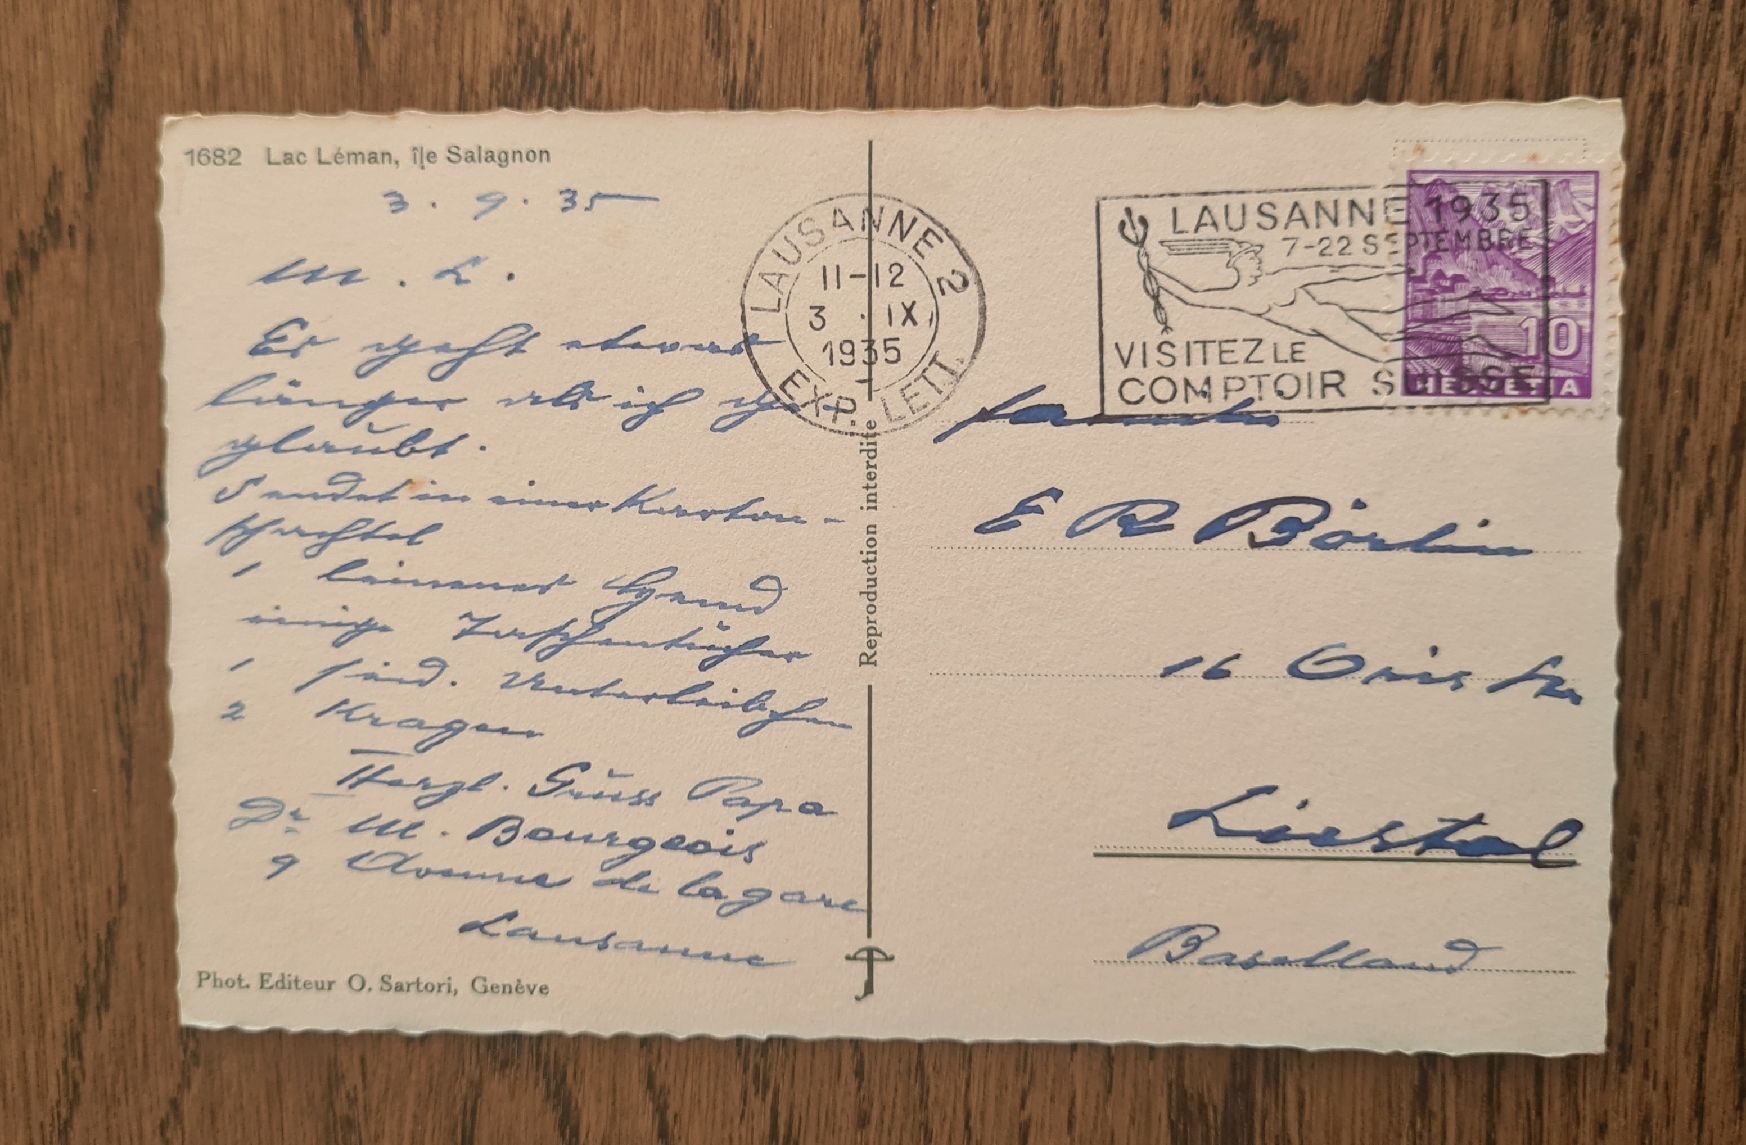 1682 Lac Léman, île Salagnon
3. 9. 35
M. L.
Es geht etwas
länger als ich ge
glaubt.
Sendet in einer Karton-
schachtel
1 leinenes Hemd
einige Taschentücher
1 seid. Unterleibchen
2 Kragen
Herzl. Gruss Papa
Dr M. Bourgeois
9 Avenue de la gare
Lausanne
Phot. Editeur O. Sartori, Genève
Reproduction interdite
LAUSANNE 2
11-12
3. IX.
1935
EXP. LETT.
LAUSANNE 1935
7-22 SEPTEMBRE
VISITEZ LE
COMPTOIR SUISSE
10
HELVETIA
E R Börlin
16 Oris Str
Liestal
Baselland